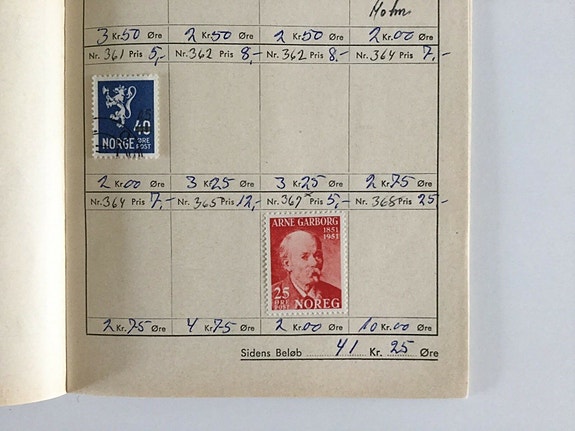 Holm
3 Kr. 50 Øre 2 Kr. 50 Øre 2 Kr. 50 Øre 2 Kr. 00 Øre
Nr. 361 Pris 5,- Nr. 362 Pris 8,- Nr. 362 Pris 8,- Nr. 364 Pris 7,-
40
NORGE ØRE
POST
2 Kr. 00 Øre 3 Kr. 25 Øre 3 Kr. 25 Øre 2 Kr. 75 Øre
Nr. 364 Pris 7,- Nr. 365 Pris 12,- Nr. 367 Pris 5,- Nr. 368 Pris 25,-
ARNE GARBORG
1851
1951
25
ØRE
POST NOREG
2 Kr. 75 Øre 4 Kr. 75 Øre 2 Kr. 00 Øre 10 Kr. 00 Øre
Sidens Beløb 41 Kr. 25 Øre